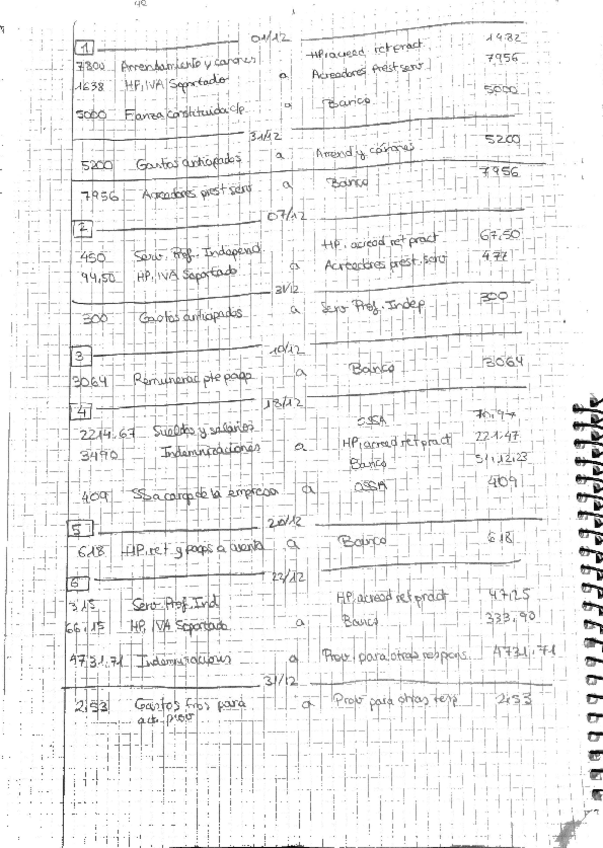 1 01/12
HP, acreed. ret pract 1482
7800 Arrendamiento y canones
1638 HP, IVA Soportado a Acreedores Prest serv 7956
5000 Fianza constituida c/p a Banco 5000
31/12
5200 Gastos anticipados a Arrend y cánones 5200
7956 Acreedores prest serv a Banco 7956
2 07/12
450 Serv. Prof. Independ. HP, acreed ret pract 67,50
94,50 HP, IVA Soportado a Acreedores prest. serv 477
31/12
300 Gastos anticipados a Serv Prof. Indep 300
3 10/12
3064 Remunerac pte pago a Banco 3064
4 18/12
2214,67 Sueldos y salarios OSSA
3490 Indemnizaciones a HP, acreed ret pract 221,47
Banco
409 SS a cargo de la empresa a OSSA 409
5 20/12
618 HP, ret y pagos a cuenta a Banco 618
6 22/12
315 Serv Prof. Ind HP, acreed ret pract 47,25
66,15 HP, IVA Soportado a Banco 333,90
4731,71 Indemnizacions a Prov. para otras respons. 4731,71
31/12
2,53 Gastos fros para a Prov para otras resp 2,53
act. prov